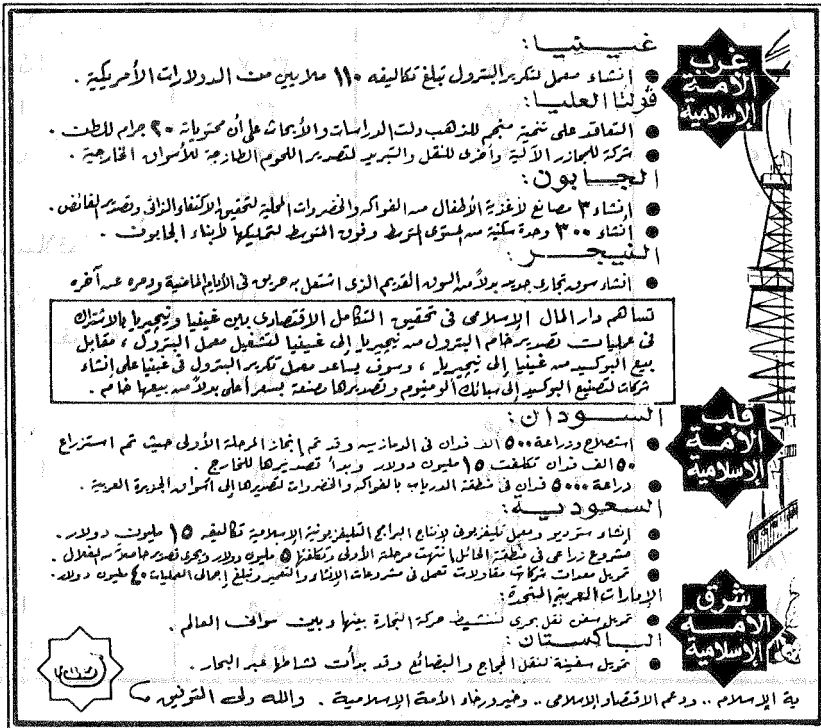 غرب
الأمة
الإسلامية
غينيا:
● إنشاء معمل لتكرير البترول تبلغ تكاليفه ١١٠ ملايين من الدولارات الأمريكية .
فولتا العليا:
● التعاقد على تنمية منجم للذهب دلت الدراسات والأبحاث على أن محتويات ٢٠ جرام للطن .
● شركة للمجازر الآلية وأخرى للنقل والتبريد لتصدير اللحوم الطازجة للأسواق الخارجية .
الجابون:
● إنشاء ٣ مصانع لأغذية الأطفال من الفواكه والخضروات المحلية لتحقيق الاكتفاء الذاتى وتصدير الفائض .
● إنشاء ٣٠٠ وحدة سكنية من المستوى المتوسط وفوق المتوسط لتمليكها لأبناء الجابون .
النيجر:
● إنشاء سوق تجارى جديد بدلاً من السوق القديم الذى اشتعل به حريق فى الأيام الماضية ودمره عن آخره
تساهم دار المال الإسلامى فى تحقيق التكامل الاقتصادى بين غينيا ونيجيريا بالاشتراك
فى عمليات تصدير خام البترول من نيجيريا إلى غينيا لتشغيل معمل البترول ، مقابل
بيع البوكسيد من غينيا إلى نيجيريا ، وسوف يساعد معمل تكرير البترول فى غينيا على إنشاء
شركات لتصنيع البوكسيد إلى سبائك ألومنيوم وتصديرها مصنعة بسعر أعلى بدلاً من بيعها خام .
قلب
الأمة
الإسلامية
السودان:
● استصلاح وزراعة ٥٠٠ ألف فدان فى الدمازين وقد تم إنجاز المرحلة الأولى حيث تم استزراع
٥٠ ألف فدان تكلفت ١٥ مليون دولار وبدأ تصديرها للخارج .
● زراعة ٥٠٠٠ فدان فى منطقة الدرباب بالفواكه والخضروات لتصديرها إلى أسواق الجزيرة العربية .
السعودية:
● إنشاء ستوديو ومعمل تليفزيونى لإنتاج البرامج التليفزيونية الإسلامية تكاليفه ١٥ مليون دولار .
● مشروع زراعى فى منطقة الحائل انتهت مرحلة الأولى وتكلفتها ٥ مليون دولار ويجرى تصدير حاصلات من الغلال .
● تمويل معدات شركات مقاولات تعمل فى مشروعات الإنشاء والتعمير وتبلغ إجمالى العمليات ٤٠ مليون دولار .
شرق
الأمة
الإسلامية
الإمارات العربية المتحدة:
● تمويل سفن نقل بحرى لتنشيط حركة التجارة بينها وبين موانى العالم .
الباكستان:
● تمويل سفينة لنقل الحجاج والبضائع وقد بدأت نشاطها عبر البحار .
ية الإسلام .. ودعم الاقتصاد الإسلامى .. وخير ورخاء الأمة الإسلامية . والله ولى التوفيق